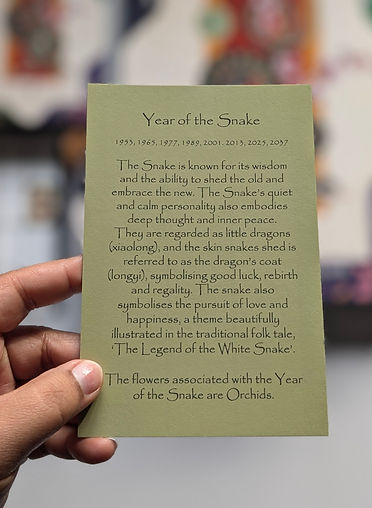 Year of the Snake
1953, 1965, 1977, 1989, 2001. 2013, 2025, 2037
The Snake is known for its wisdom
and the ability to shed the old and
embrace the new. The Snake's quiet
and calm personality also embodies
deep thought and inner peace.
They are regarded as little dragons
(xiaolong), and the skin snakes shed is
referred to as the dragon's coat
(longyi), symbolising good luck, rebirth
and regality. The snake also
symbolises the pursuit of love and
happiness, a theme beautifully
illustrated in the traditional folk tale,
'The Legend of the White Snake'.
The flowers associated with the Year
of the Snake are Orchids.